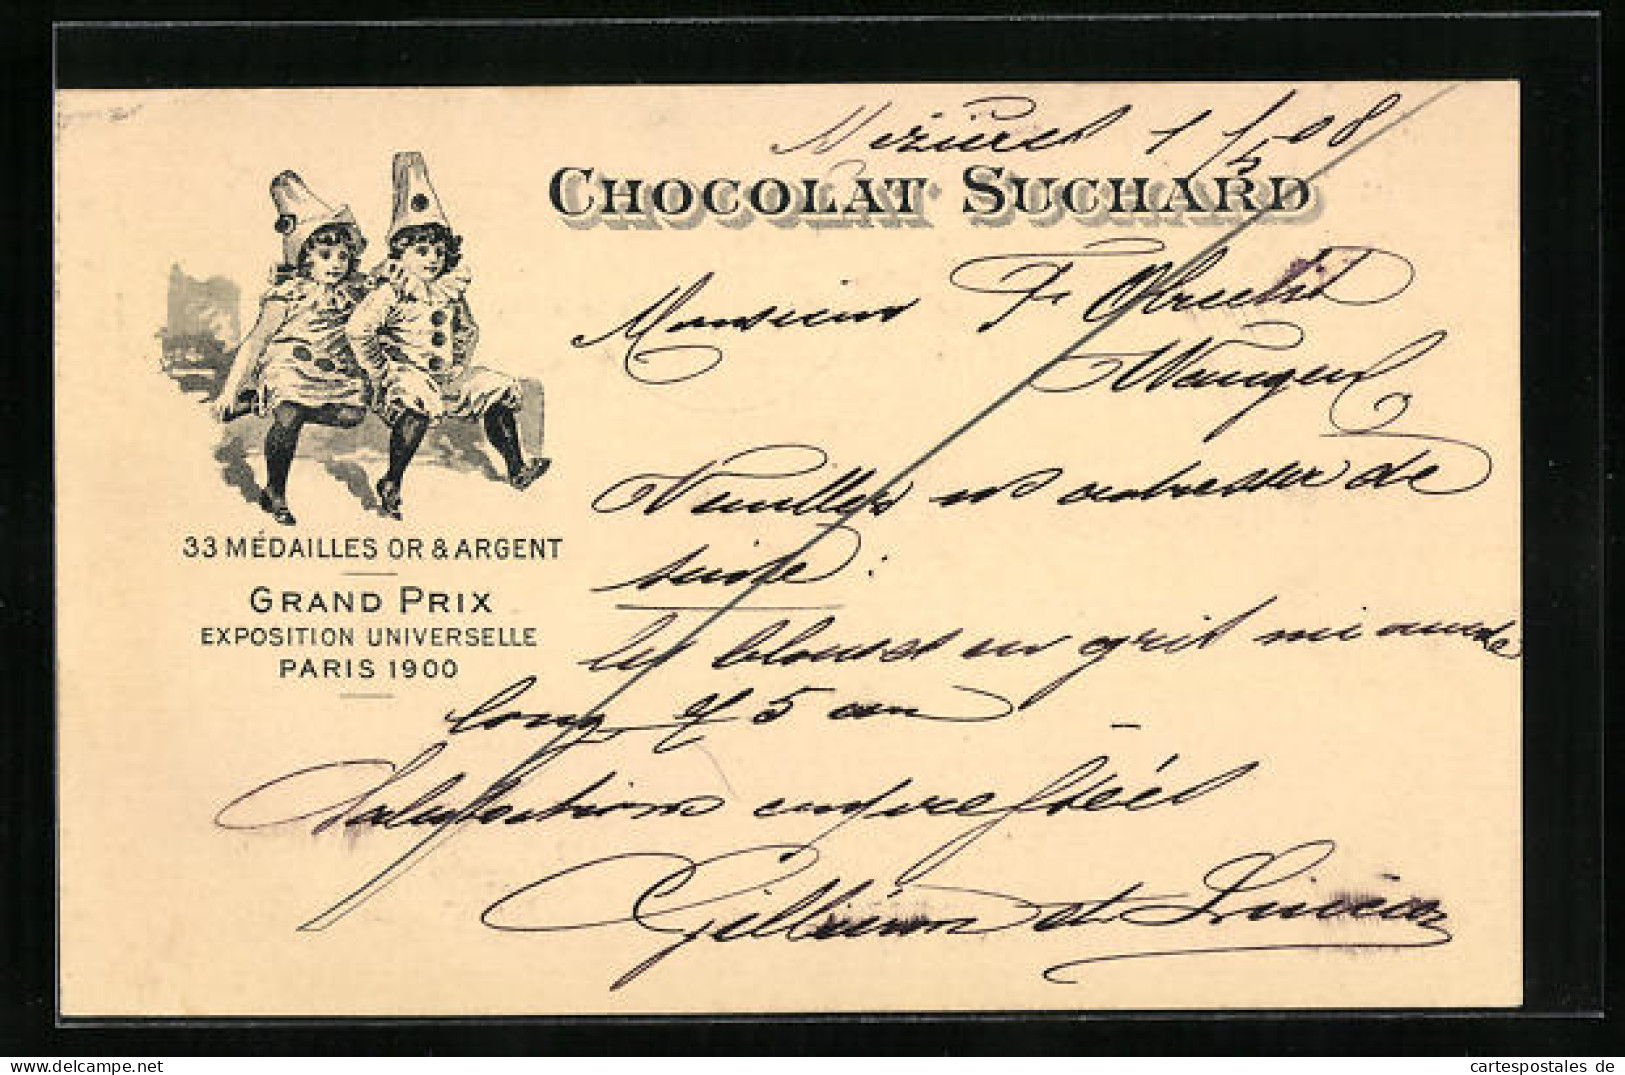 Mézières 1/5 08
CHOCOLAT SUCHARD
Monsieur F. Obrecht
Wangen
Veuillez ns adresser de
suite :
blouses en gris
long 75 cm
Salutations empressées
Gilliéron et
33 MÉDAILLES OR & ARGENT
GRAND PRIX
EXPOSITION UNIVERSELLE
PARIS 1900
cartespostales de